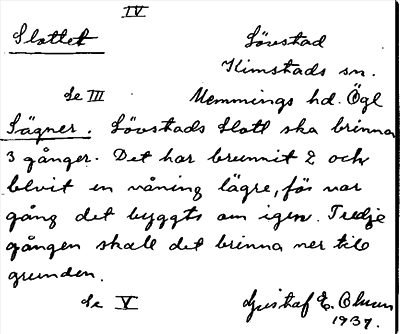 IV
Slottet Lövstad
Kimstads sn.
Se III Memmings hd. Ögl
Sägner. Lövstads slott ska brinna
3 gånger. Det har brunnit 2 och
blvit en våning lägre, för var
gång det byggts om igen. Tredje
gången skall det brinna ner till
grunden.
Se V Gustaf E. Olsson
1937.